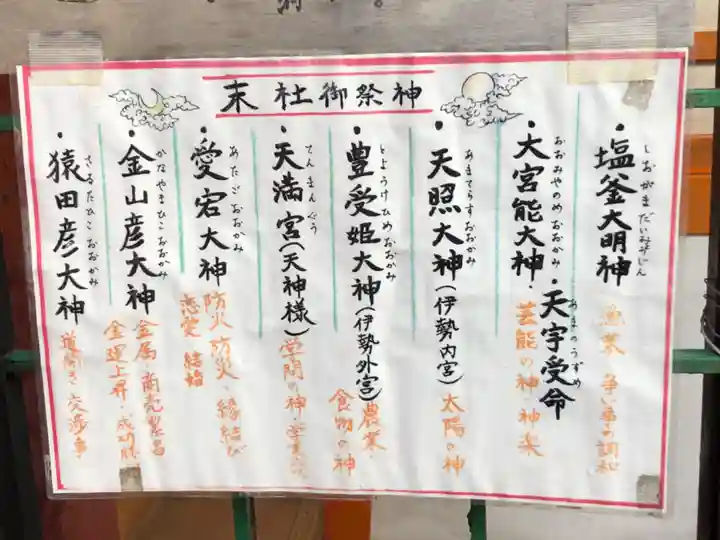 末社御祭神
・塩釜大明神
しおがまだいみょうじん
漁業・争い事の調和
・大宮能大神・天宇受命
おおみやのめおおかみ
あまのうずめ
芸能の神・神楽
・天照大神(伊勢内宮)
あまてらすおおかみ
太陽の神
・豊受姫大神(伊勢外宮)
とようけひめおおかみ
農業・
食物の神
・天満宮(天神様)
てんまんぐう
学問の神・学業
・愛宕大神
あたごおおかみ
防火・防火・縁結び
恋愛・結婚
・金山彦大神
かなやまひこおおかみ
金属・商売繁昌
金運上昇・成功勝
・猿田彦大神
さるたひこおおかみ
道開き・交渉事・